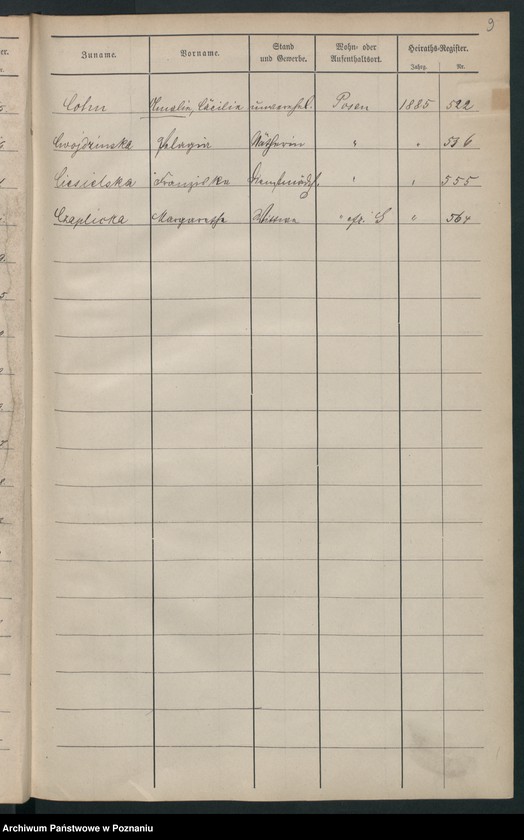 9
Zuname. Vorname. Stand und Gewerbe. Wohn- oder Aufenthaltsort. Heiraths-Register.
Jahrg. Nr.
Cohn Amalie, Cäcilie unverehel. Posen 1885 522
Cwojdzinska Pelagia Nätherin " " 536
Ciesielska Franziska Dienstmädch. " " 555
Czaplicka Margarethe Wittwe " " 564
Archiwum Państwowe w Poznaniu